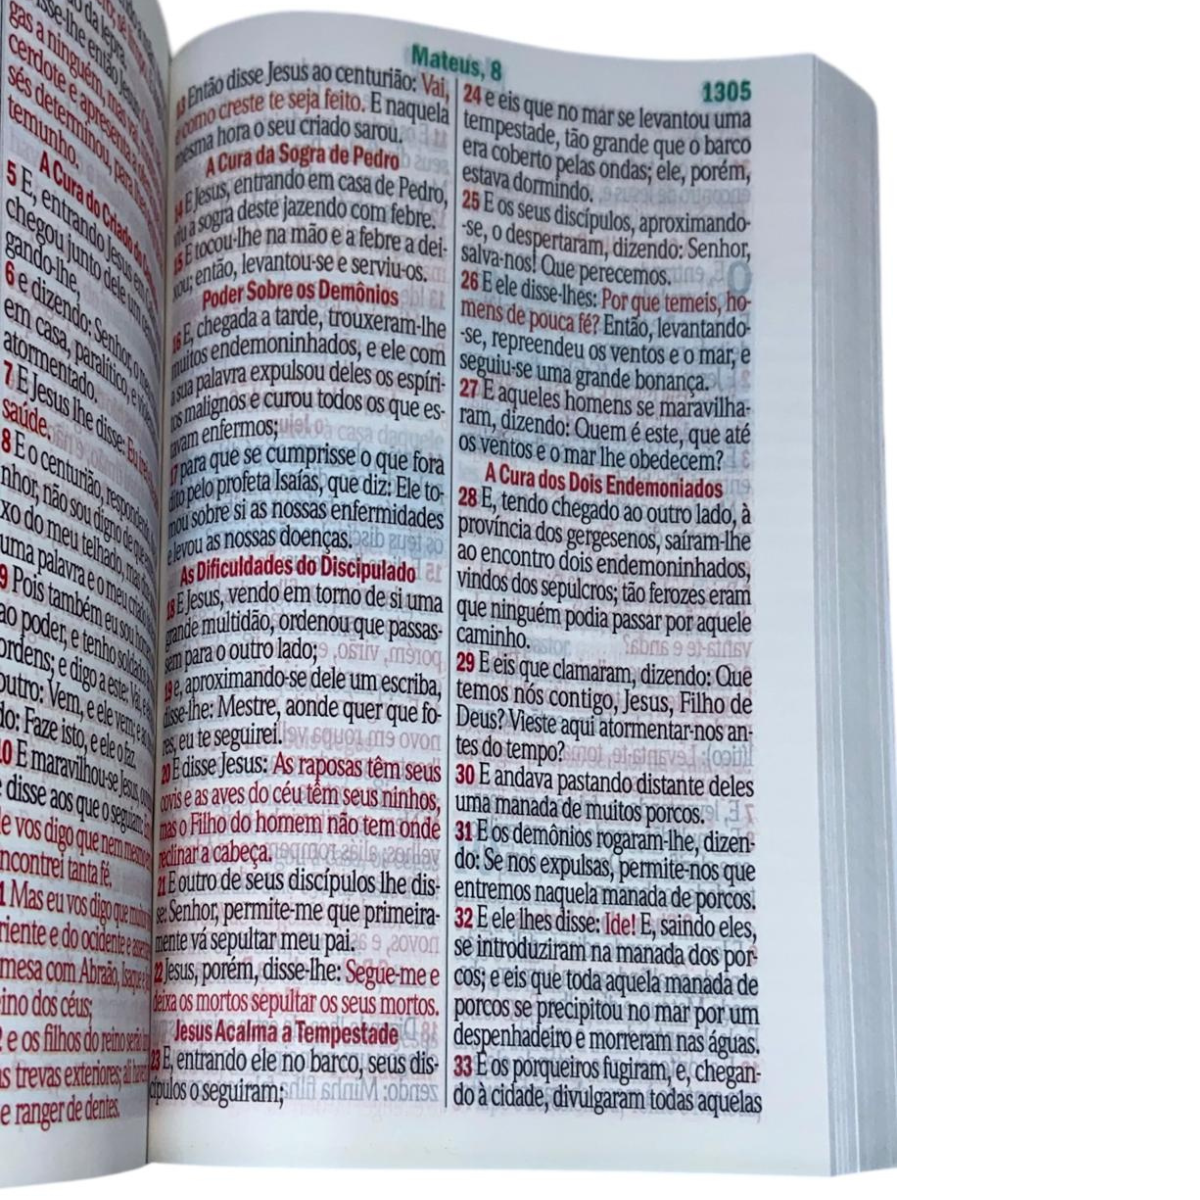 da lepra.
sse-lhe então Jesus:
gas a ninguém, mas vai,
cerdote e apresenta a
sés determinou, para
temunho.
A Cura do Criado do
5 E, entrando Jesus em
chegou junto dele um
gando-lhe,
6 e dizendo: Senhor, o
em casa, paralítico, e
atormentado.
7 E Jesus lhe disse: Eu
saúde.
8 E o centurião, respondendo
nhor, não sou digno de que
xo do meu telhado, mas
uma palavra e o meu criado
9 Pois também eu sou
ao poder, e tenho
ordens; e digo a este: Vai, e
outro: Vem, e ele vem; e ao
do: Faze isto, e ele o faz.
10 E maravilhou-se Jesus,
disse aos que o seguiam:
e vos digo que nem mesmo
ncontrei tanta fé.
1 Mas eu vos digo que
riente e do ocidente e
mesa com Abraão, Isaque e
ino dos céus;
2 e os filhos do reino serão
s trevas exteriores; ali
e ranger de dentes.
Mateus, 8
1305
13 Então disse Jesus ao centurião: Vai,
e como creste te seja feito. E naquela
mesma hora o seu criado sarou.
A Cura da Sogra de Pedro
14 E Jesus, entrando em casa de Pedro,
viu a sogra deste jazendo com febre.
15 E tocou-lhe na mão e a febre a dei-
xou; então, levantou-se e serviu-os.
Poder Sobre os Demônios
16 E, chegada a tarde, trouxeram-lhe
muitos endemoninhados, e ele com
a sua palavra expulsou deles os espíri-
tos malignos e curou todos os que es-
tavam enfermos;
17 para que se cumprisse o que fora
dito pelo profeta Isaías, que diz: Ele to-
mou sobre si as nossas enfermidades
e levou as nossas doenças.
As Dificuldades do Discipulado
18 E Jesus, vendo em torno de si uma
grande multidão, ordenou que passas-
sem para o outro lado;
19 e, aproximando-se dele um escriba,
disse-lhe: Mestre, aonde quer que fo-
res, eu te seguirei.
20 E disse Jesus: As raposas têm seus
covis e as aves do céu têm seus ninhos,
mas o Filho do homem não tem onde
reclinar a cabeça.
21 E outro de seus discípulos lhe dis-
se: Senhor, permite-me que primeira-
mente vá sepultar meu pai.
22 Jesus, porém, disse-lhe: Segue-me e
deixa os mortos sepultar os seus mortos.
Jesus Acalma a Tempestade
23 E, entrando ele no barco, seus dis-
cípulos o seguiram;
24 e eis que no mar se levantou uma
tempestade, tão grande que o barco
era coberto pelas ondas; ele, porém,
estava dormindo.
25 E os seus discípulos, aproximando-
-se, o despertaram, dizendo: Senhor,
salva-nos! Que perecemos.
26 E ele disse-lhes: Por que temeis, ho-
mens de pouca fé? Então, levantando-
-se, repreendeu os ventos e o mar, e
seguiu-se uma grande bonança.
27 E aqueles homens se maravilha-
ram, dizendo: Quem é este, que até
os ventos e o mar lhe obedecem?
A Cura dos Dois Endemoniados
28 E, tendo chegado ao outro lado, à
província dos gergesenos, saíram-lhe
ao encontro dois endemoninhados,
vindos dos sepulcros; tão ferozes eram
que ninguém podia passar por aquele
caminho.
29 E eis que clamaram, dizendo: Que
temos nós contigo, Jesus, Filho de
Deus? Vieste aqui atormentar-nos an-
tes do tempo?
30 E andava pastando distante deles
uma manada de muitos porcos.
31 E os demônios rogaram-lhe, dizen-
do: Se nos expulsas, permite-nos que
entremos naquela manada de porcos.
32 E ele lhes disse: Ide! E, saindo eles,
se introduziram na manada dos por-
cos; e eis que toda aquela manada de
porcos se precipitou no mar por um
despenhadeiro e morreram nas águas.
33 E os porqueiros fugiram, e, chegan-
do à cidade, divulgaram todas aquelas